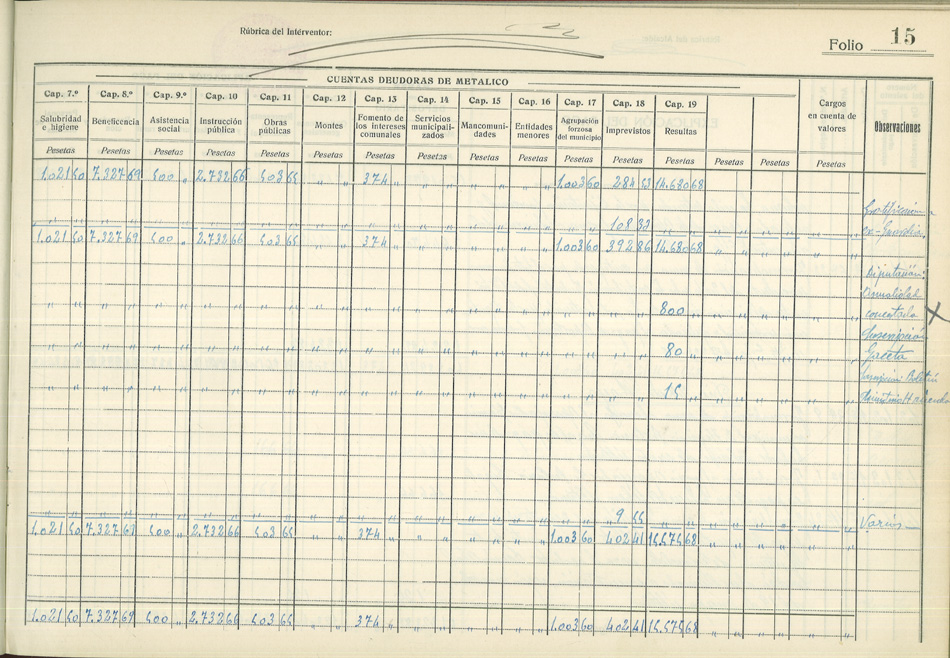 Rúbrica del Interventor:
Folio 15
CUENTAS DEUDORAS DE METALICO
Cap. 7.º Cap. 8.º Cap. 9.º Cap. 10 Cap. 11 Cap. 12 Cap. 13 Cap. 14 Cap. 15 Cap. 16 Cap. 17 Cap. 18 Cap. 19
Salubridad e higiene Beneficencia Asistencia social Instrucción pública Obras públicas Montes Fomento de los intereses comunales Servicios municipalizados Mancomunidades Entidades menores Agrupación forzosa del municipio Imprevistos Resultas Cargos en cuenta de valores Observaciones
Pesetas Pesetas Pesetas Pesetas Pesetas Pesetas Pesetas Pesetas Pesetas Pesetas Pesetas Pesetas Pesetas Pesetas Pesetas Pesetas
1.021 50 7.327 69 500 " 2.732 66 503 65 " " 374 " " " " " " " 1.003 60 284 53 14.680 68
108 33
1.021 50 7.327 69 500 " 2.732 66 503 65 " " 374 " " " " " " " 1.003 60 392 86 14.680 68
Diputación:
800
Suscripción
80 Gaceta
Boletín
15
9 55 Varios
1.021 50 7.327 69 500 " 2.732 66 503 65 " " 374 " " " " " " " 1.003 60 402 41 15.575 68
1.021 50 7.327 69 500 " 2.732 66 503 65 " " 374 " " " " " " " 1.003 60 402 41 15.575 68